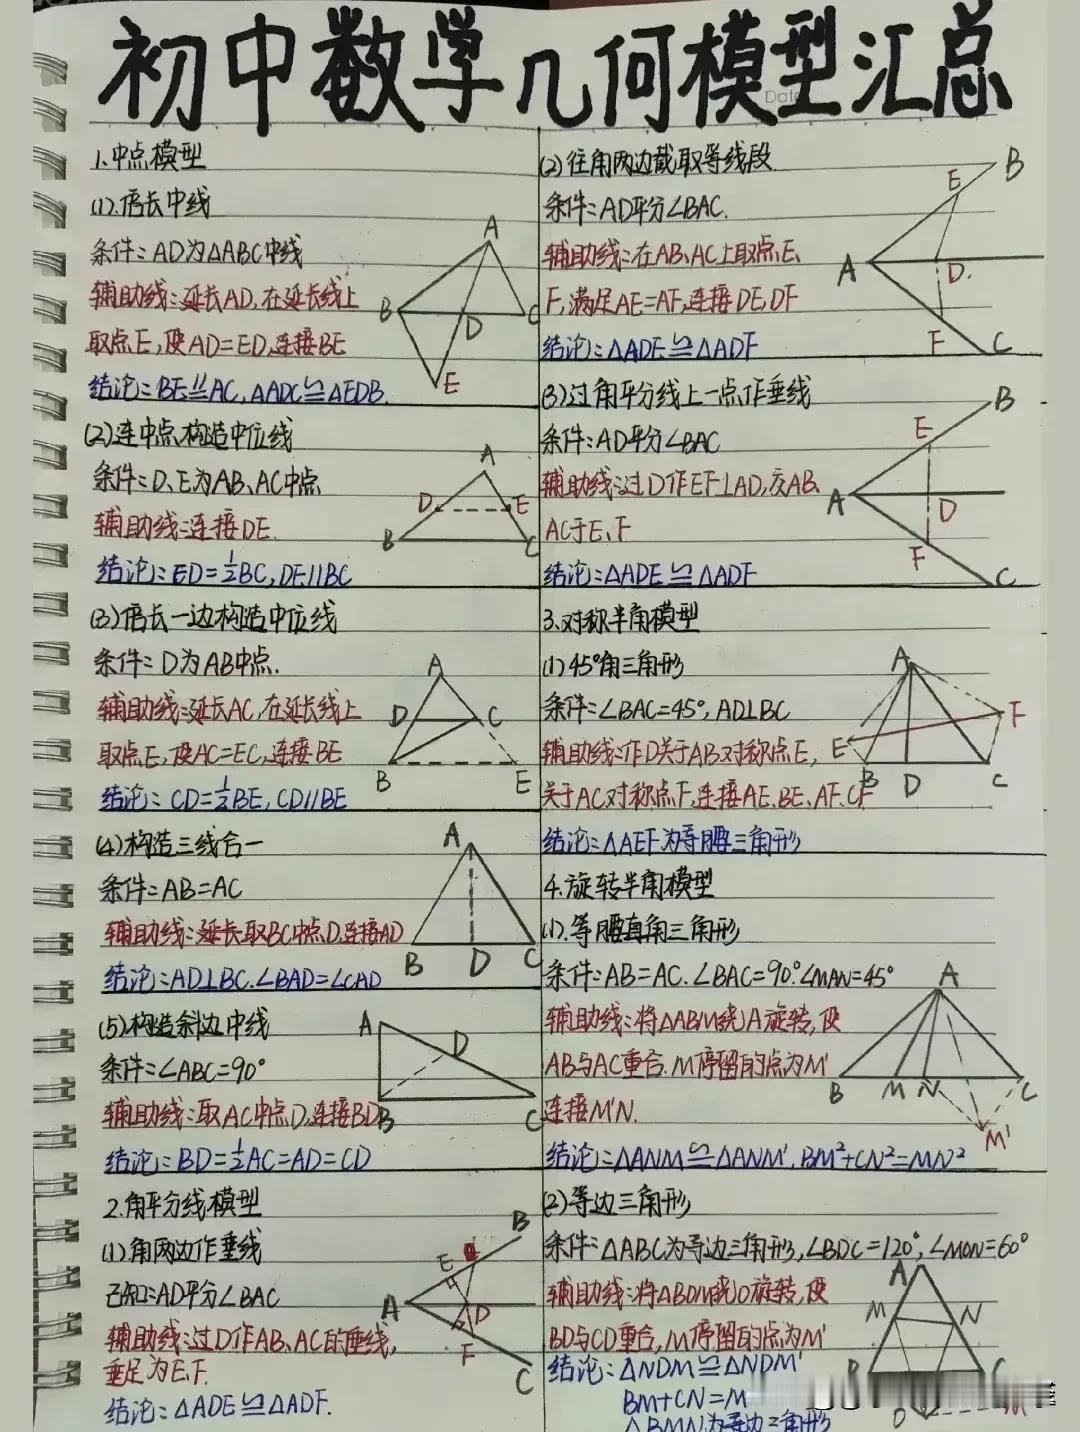 初中数学几何模型汇总
Date
1.中点模型
(1).倍长中线
条件:AD为△ABC中线
辅助线:延长AD,在延长线上
取点E,使AD=ED,连接BE
结论:BE∥AC,△ADC≌△EDB.
A
B
D
C
E
(2)连中点构造中位线
条件:D、E为AB、AC中点
辅助线:连接DE.
结论:ED=½BC,DE//BC
A
D
E
B
C
(3)倍长一边构造中位线
条件:D为AB中点.
辅助线:延长AC,在延长线上
取点E,使AC=EC,连接BE
结论:CD=½BE,CD//BE
A
D
C
B
E
(4)构造三线合一
条件:AB=AC
辅助线:延长取BC中点D,连接AD
结论:AD⊥BC.∠BAD=∠CAD
A
B
D
C
(5)构造斜边中线
条件:∠ABC=90°
辅助线:取AC中点D,连接BD
结论:BD=½AC=AD=CD
A
D
B
C
2.角平分线模型
(1)角两边作垂线
已知:AD平分∠BAC
辅助线:过D作AB、AC的垂线,
垂足为E,F.
结论:△ADE≌△ADF.
B
E
A
D
F
C
(2)往角两边截取等线段
条件:AD平分∠BAC.
辅助线:在AB、AC上取点E、
F,满足AE=AF,连接DE,DF
结论:△ADE≌△ADF
B
E
A
D.
F
C
(3)过角平分线上一点作垂线
条件:AD平分∠BAC
辅助线:过D作EF⊥AD,交AB、
AC于E、F
结论:△ADE≌△ADF
B
E
A
D
F
C
3.对称半角模型
(1)45°角三角形
条件:∠BAC=45°,AD⊥BC
辅助线:作D关于AB对称点E,
关于AC对称点F,连接AE、BE、AF、CF
结论:△AEF为等腰三角形
A
F
E
B
D
C
4.旋转半角模型
(1).等腰直角三角形
条件:AB=AC.∠BAC=90°.∠MAN=45°
辅助线:将△ABM绕A旋转,使
AB与AC重合.M停留的点为M'
连接M'N.
结论:△ANM≌△ANM'.BM²+CN²=MN²
A
B
M
N
C
M'
(2)等边三角形
条件:△ABC为等边三角形,∠BDC=120°,∠MDN=60°
辅助线:将△BDM绕D旋转,使
BD与CD重合,M停留的点为M'
结论:△NDM≌△NDM'
BM+CN=M
A
M
N
B
C
D